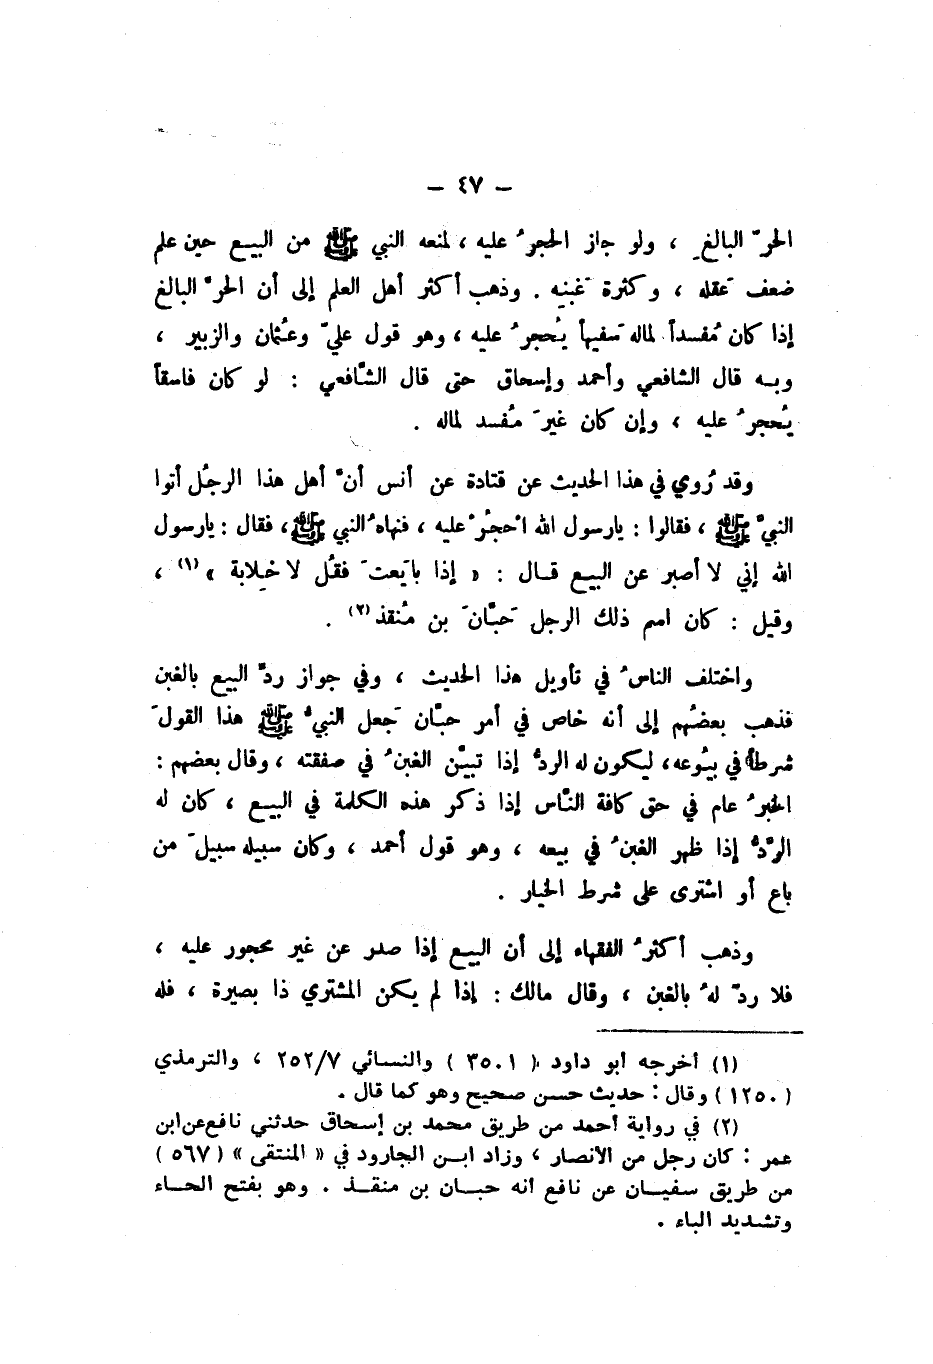 – ٤٧ –
الحرّ البالغِ ، ولو جاز الحجرُ عليه ، لمنعه النبي ﷺ من البيع حين علم
ضعف عَقله ، وكثرة غَبنِه . وذهب أكثر أهل العلم إلى أن الحرّ البالغ
إذا كان مُفسداً لماله سَفيهاً يُحجرُ عليه ، وهو قول عليّ وعُثمان والزبير ،
وبه قال الشافعي وأحمد وإسحاق حتى قال الشَّافعي : لو كان فاسقاً
يُحجرُ عليه ، وإن كان غيرَ مُفسد لماله .
وقد رُوي في هذا الحديث عن قتادة عن أنس أنّ أهل هذا الرجُل أتوا
النبيّ ﷺ ، فقالوا : يارسول الله احجُرْ عليه ، فنهاهُ النبي ﷺ ، فقال : يارسول
الله إني لا أصبر عن البيع قال : « إذا بايَعتَ فقُل لا خِلابة » (١) ،
وقيل : كان اسم ذلك الرجل حَبَّانَ بن مُنقذ (٢) .
واختلف الناسُ في تأويل هذا الحديث ، وفي جواز ردّ البيع بالغبن
فذهب بعضُهم إلى أنه خاص في أمر حبَّان جَعل النبيُّ ﷺ هذا القولَ
شرطاً في بيُوعه ، ليكون له الردُّ إذا تبيَّن الغبنُ في صفقته ، وقال بعضهم :
الخبرُ عام في حق كافة النَّاس إذا ذكر هذه الكلمة في البيع ، كان له
الرَّدُّ إذا ظهر الغبنُ في بيعه ، وهو قول أحمد ، وكان سبيله سبيلَ من
باع أو اشترى على شرط الخيار .
وذهب أكثرُ الفقهاء إلى أن البيع إذا صدر عن غير محجور عليه ،
فلا ردّ لهُ بالغبن ، وقال مالك : إذا لم يكن المشتري ذا بصيرة ، فله
(١) أخرجه أبو داود ( ٣٥٠١ ) والنسائي ٢٥٢/٧ ، والترمذي
( ١٢٥٠ ) وقال : حديث حسن صحيح وهو كما قال .
(٢) في رواية أحمد من طريق محمد بن إسحاق حدثني نافع عن ابن
عمر : كان رجل من الانصار ، وزاد ابن الجارود في « المنتقى » ( ٥٦٧ )
من طريق سفيان عن نافع أنه حبان بن منقذ . وهو بفتح الحاء
وتشديد الباء .